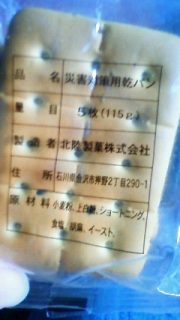 品名 災害対策用乾パン
量目 5枚(115g)
製造者 北陸製菓株式会社
住所 石川県金沢市押野2丁目290-1
原材料 小麦粉、上白糖、ショートニング、
食塩、胡麻、イースト、